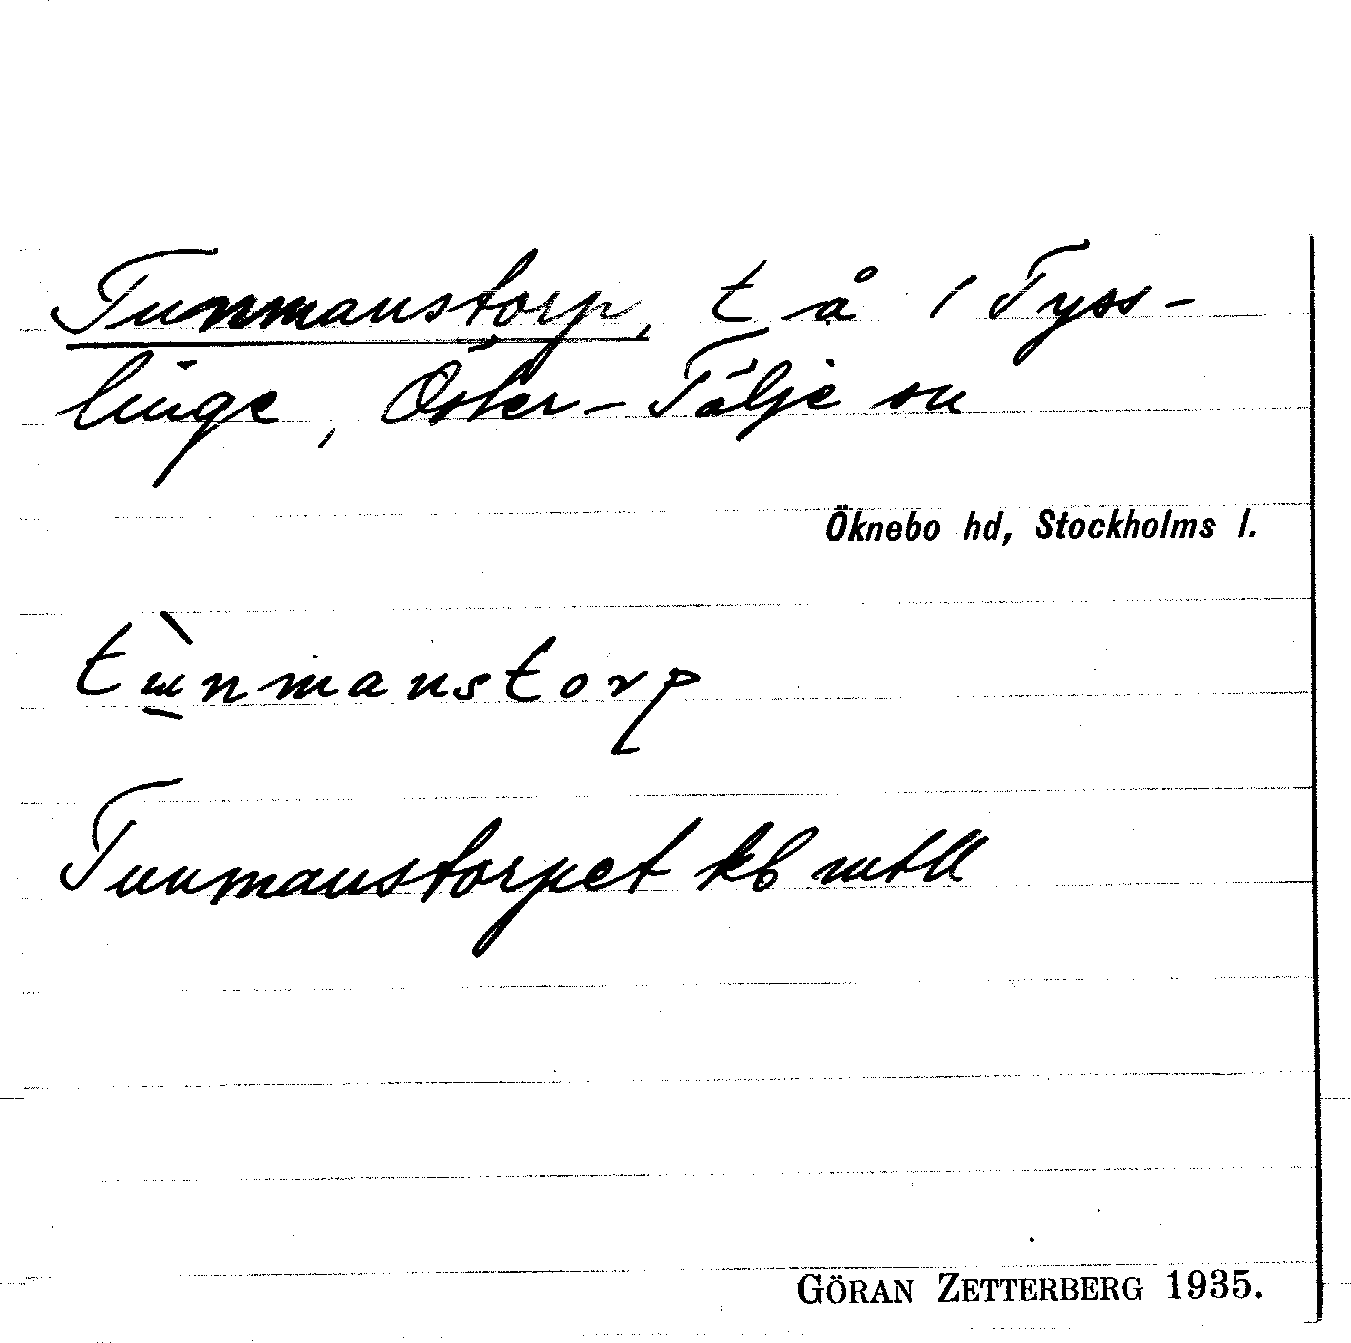 Tunmanstorp, t å 1 Tyss-
linge, Öster-Tälje sn
Öknebo hd, Stockholms l.
tùnmanstorp
Tunmanstorpet kb mtll
GÖRAN ZETTERBERG 1935.